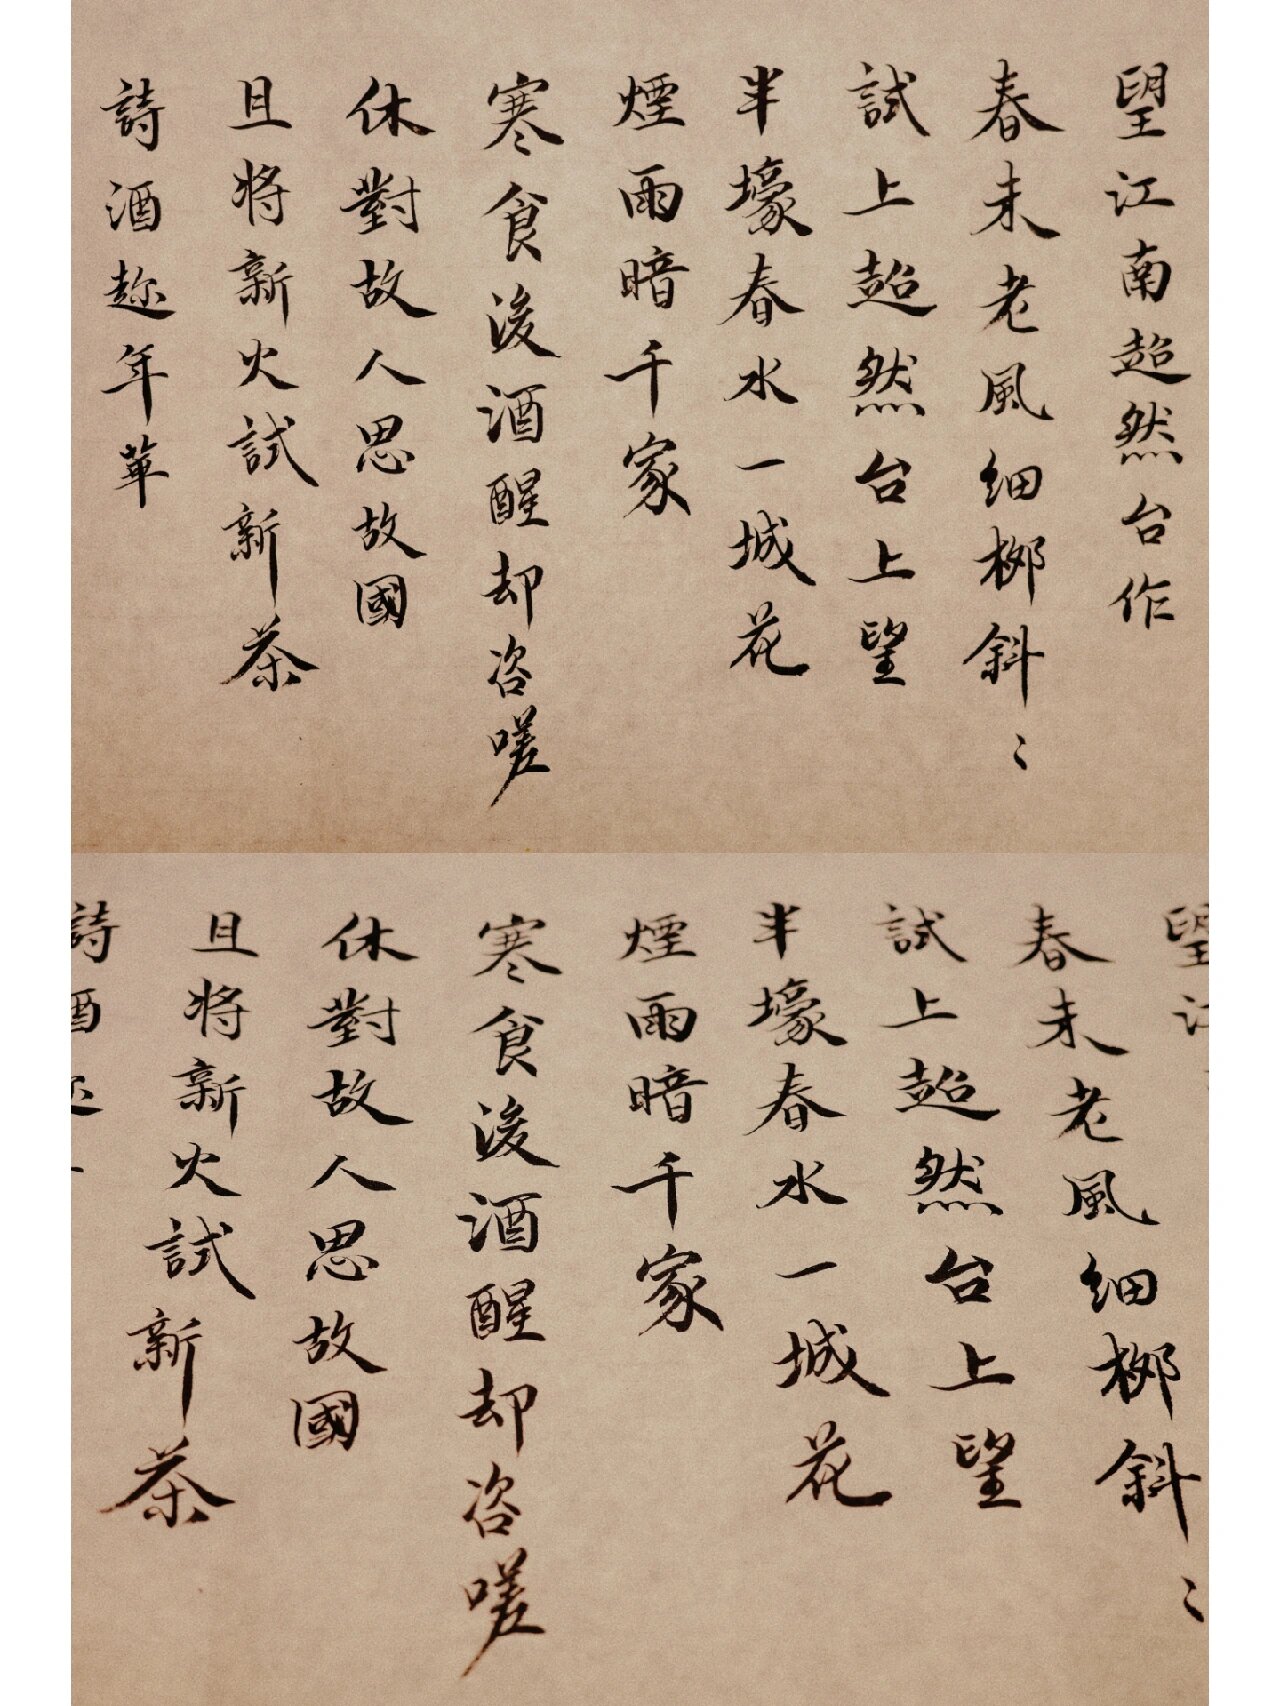 望江南超然台作
春未老風細柳斜〻
試上超然台上望
半壕春水一城花
煙雨暗千家
寒食後酒醒却咨嗟
休對故人思故國
且将新火試新茶
詩酒趂年華
望
春未老風細柳斜〻
試上超然台上望
半壕春水一城花
煙雨暗千家
寒食後酒醒却咨嗟
休對故人思故國
且将新火試新茶
詩酒